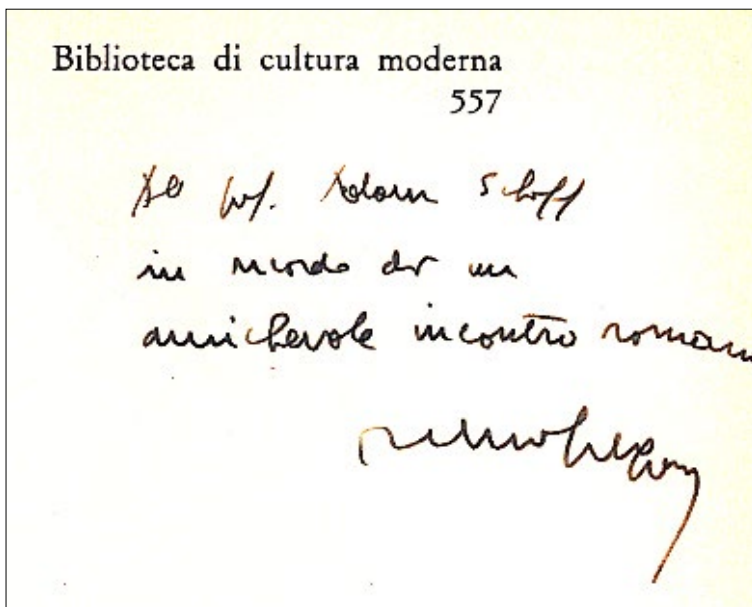 Biblioteca di cultura moderna
557
Al prof. Adam Schaff
in ricordo di un
amichevole incontro romano